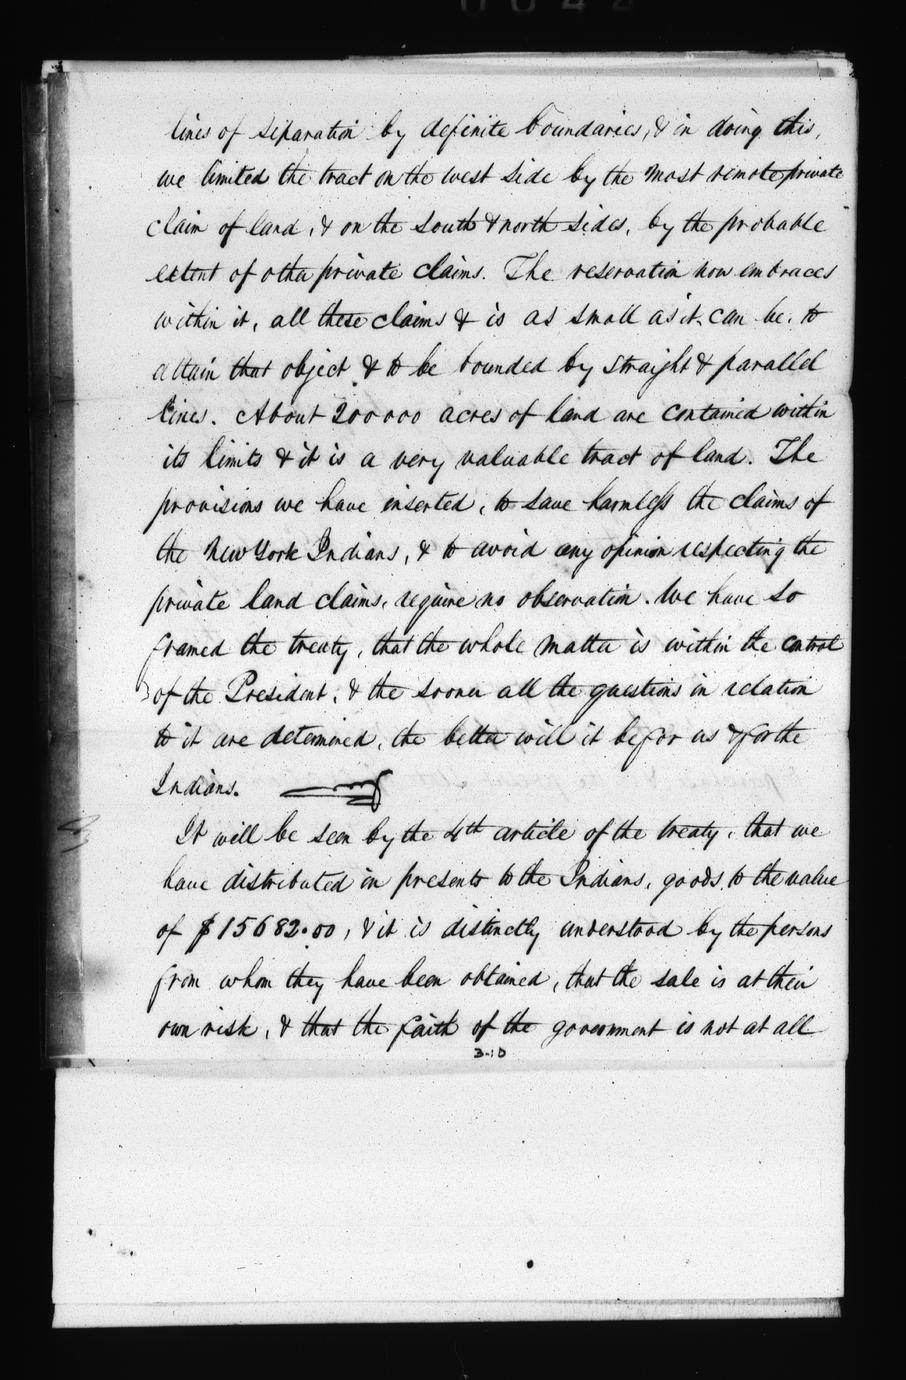 lines of separation by definite boundaries, & in doing this,
we limited the tract on the west side by the most remote private
claim of land, & on the south & north sides, by the probable
extent of other private claims. The reservation now embraces
within it, all these claims & is as small as it can be, to
attain that object & to be bounded by straight & parallel
lines. About 200000 acres of land are contained within
its limits & it is a very valuable tract of land. The
provisions we have inserted, to save harmless the claims of
the New York Indians, & to avoid any opinion respecting the
private land claims, require no observation. We have so
framed the treaty, that the whole matter is within the control
of the President, & the sooner all the questions in relation
to it are determined, the better will it be for us & for the
Indians.
It will be seen by the 4th article of the treaty, that we
have distributed in presents to the Indians, goods to the value
of $15682.00, & it is distinctly understood by the persons
from whom they have been obtained, that the sale is at their
own risk, & that the faith of the government is not at all
3-10